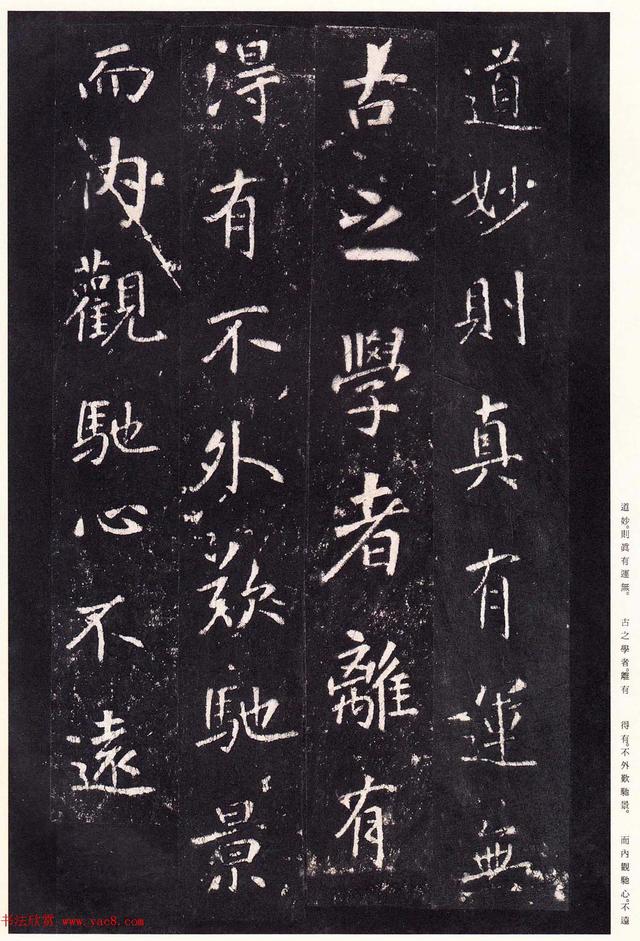 道妙則真有運無
古之學者離有
得有不外歎馳景
而內觀馳心不遠
道妙。則眞有運無。 古之學者。離有 得有。不外歎馳景。 而內觀馳心。不遠
书法欣赏 www.yac8.com